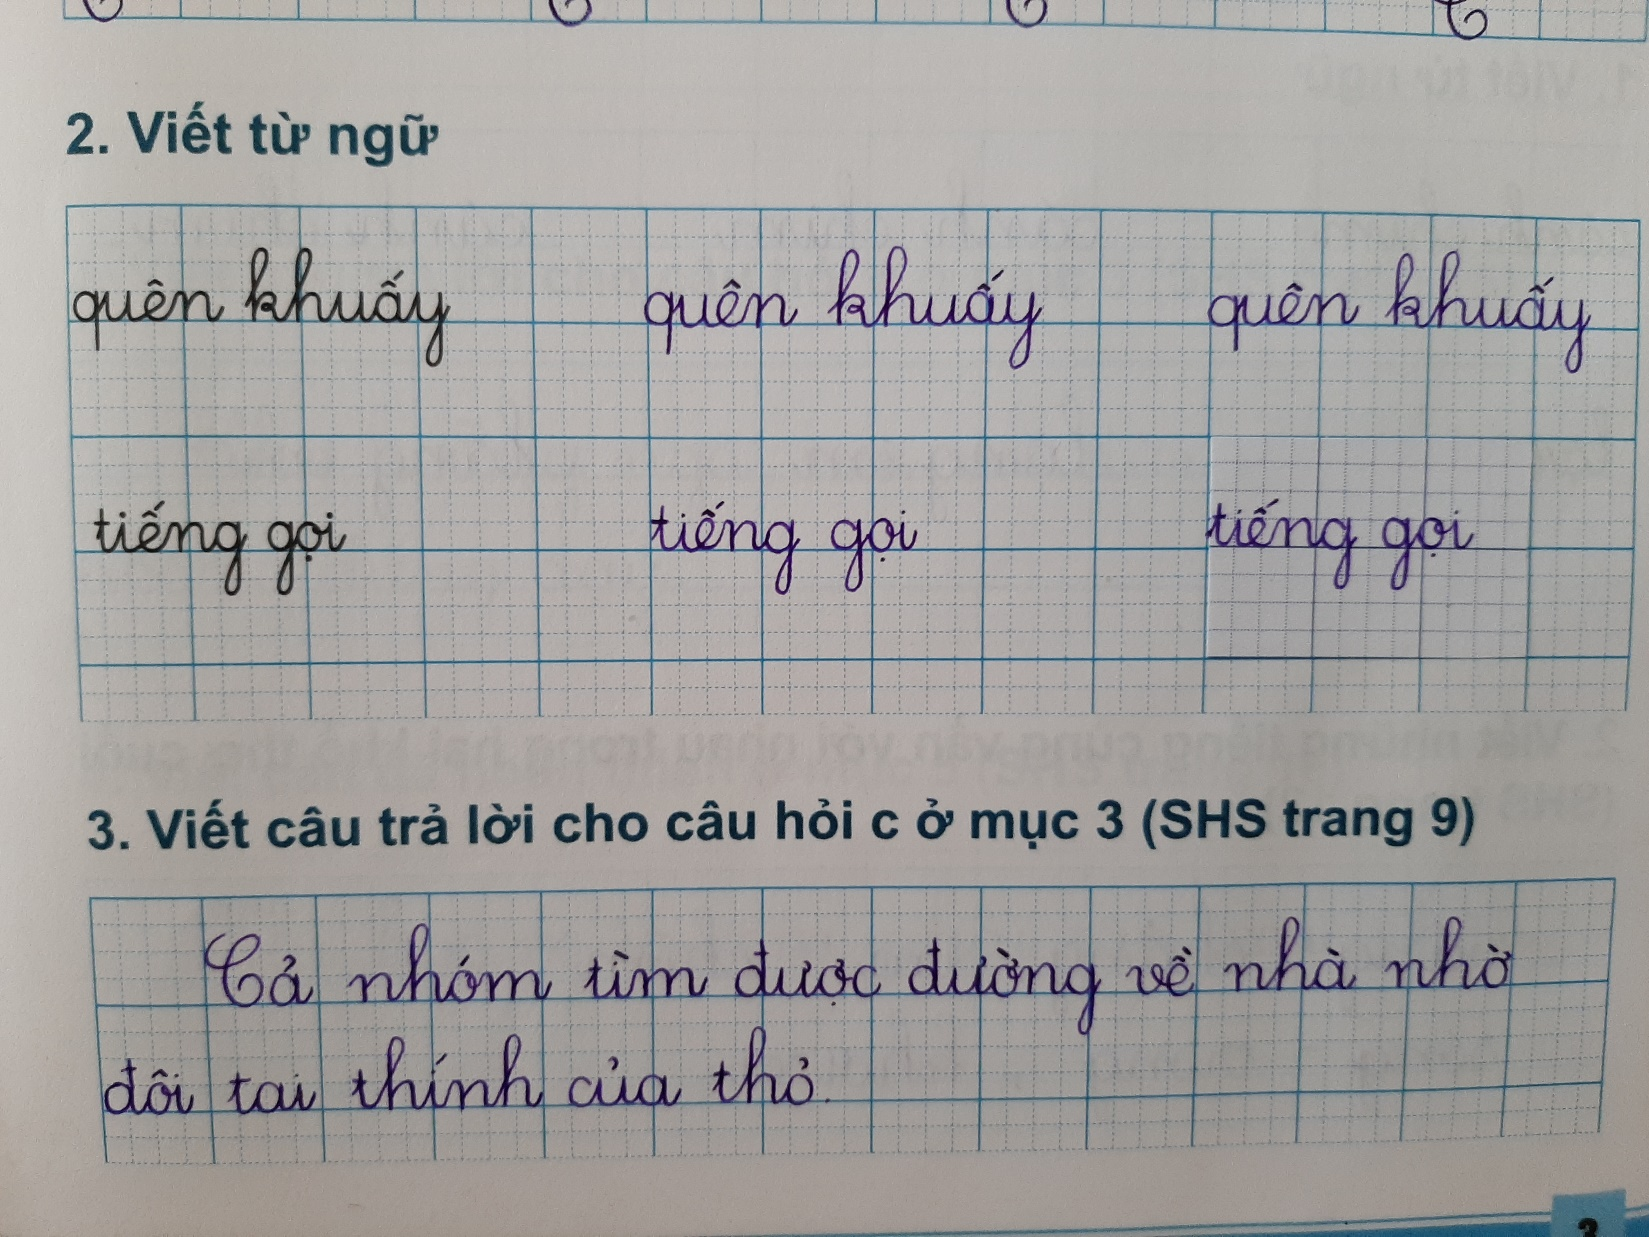 2. Viết từ ngữ
quên khuấy quên khuấy quên khuấy
tiếng gọi tiếng gọi tiếng gọi
3. Viết câu trả lời cho câu hỏi c ở mục 3 (SHS trang 9)
Cả nhóm tìm được đường về nhà nhờ
đôi tai thính của thỏ.
3